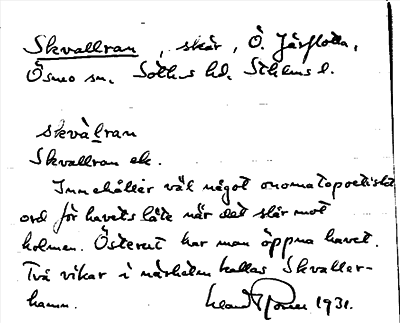 Skvallran, skär, Ö. Järflotta,
Ösmo sn. Sotholms hd. Sthlms l.
skvàlran
Skvallran ek.
Innehåller väl något onomatopoetiskt
ord för havets läte när det slår mot
holmen. Österut har man öppna havet.
Två vikar i närheten kallas Skvaller-
hamn. 1931.